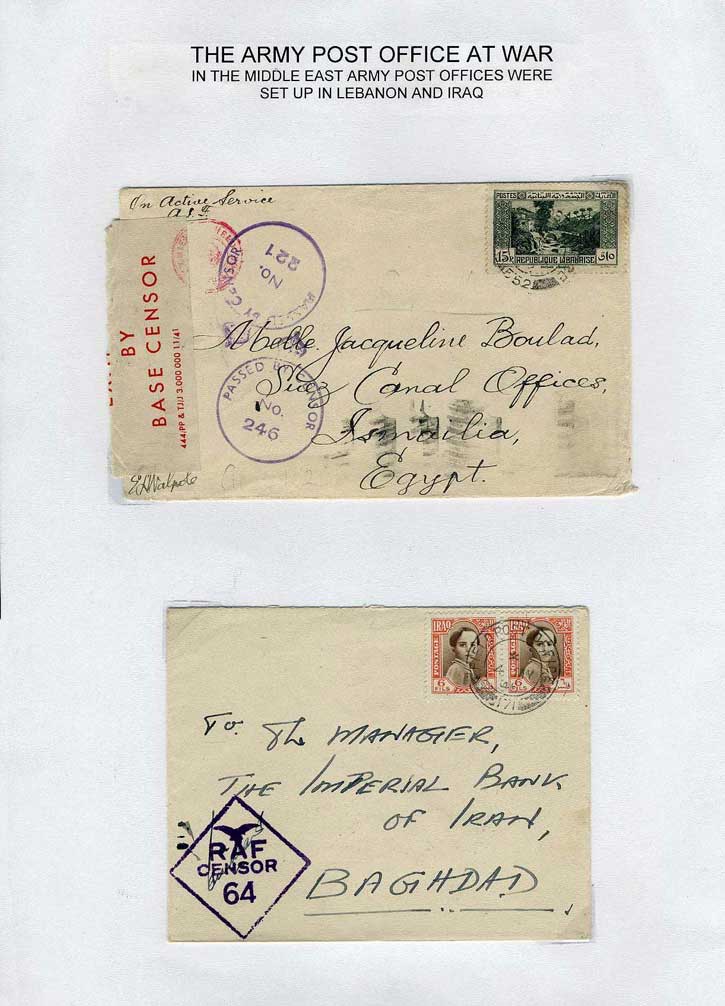 THE ARMY POST OFFICE AT WAR
IN THE MIDDLE EAST ARMY POST OFFICES WERE
SET UP IN LEBANON AND IRAQ
On Active Service
POSTES
15P
REPUBLIQUE LIBANAISE
BY
BASE CENSOR
444/PP & TJJ 3.000 000 11/41
PASSED BY CENSOR
No.
221
PASSED BY CENSOR
No.
246
Mdlle. Jacqueline Boulad,
Suez Canal Offices,
Ismailia,
Egypt.
EHWalpole
IRAQ
POSTAGE
6
FILS
IRAQ
POSTAGE
6
To. The MANAGER,
THE IMPERIAL BANK
OF IRAN,
BAGHDAD
RAF
CENSOR
64